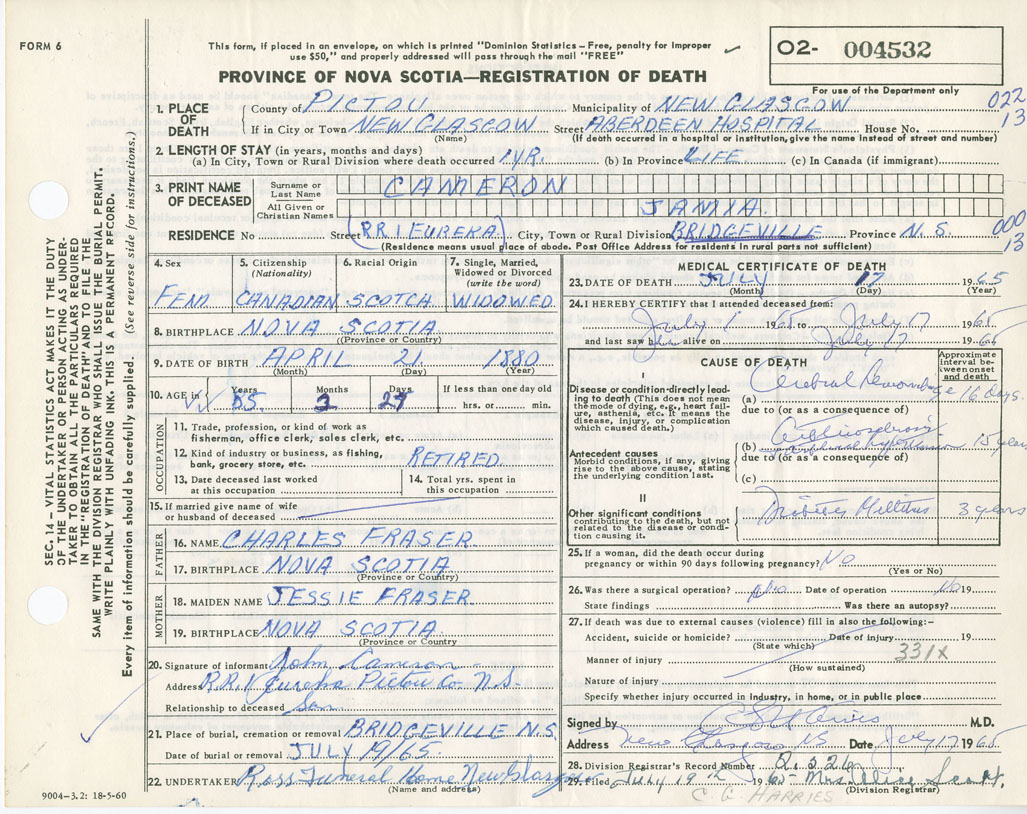 FORM 6
This form, if placed in an envelope, on which is printed "Dominion Statistics – Free, penalty for improper
use $50," and properly addressed will pass through the mail "FREE"
PROVINCE OF NOVA SCOTIA—REGISTRATION OF DEATH
O2- 004532
For use of the Department only
022
13
1. PLACE OF DEATH
County of PICTOU Municipality of NEW GLASGOW
If in City or Town NEW GLASGOW Street ABERDEEN HOSPITAL House No.
(Name) (If death occurred in a hospital or institution, give the name instead of street and number)
2. LENGTH OF STAY (in years, months and days)
(a) In City, Town or Rural Division where death occurred 1 YR. (b) In Province LIFE (c) In Canada (if immigrant)
3. PRINT NAME OF DECEASED
Surname or Last Name CAMERON
All Given or Christian Names JAMIA.
RESIDENCE No Street (R.R.1 EUREKA) City, Town or Rural Division BRIDGEVILLE Province N.S.
000
13
(Residence means usual place of abode. Post Office Address for residents in rural parts not sufficient)
4. Sex FEM
5. Citizenship (Nationality) CANADIAN
6. Racial Origin SCOTCH
7. Single, Married, Widowed or Divorced (write the word) WIDOWED
8. BIRTHPLACE NOVA SCOTIA
(Province or Country)
9. DATE OF BIRTH APRIL 21 1880
(Month) (Day) (Year)
10. AGE in Years 85 Months 2 Days 27 If less than one day old
hrs. or min.
OCCUPATION
11. Trade, profession, or kind of work as
fisherman, office clerk, sales clerk, etc.
12. Kind of industry or business, as fishing,
bank, grocery store, etc. RETIRED
13. Date deceased last worked
at this occupation
14. Total yrs. spent in
this occupation
15. If married give name of wife
or husband of deceased
FATHER
16. NAME CHARLES FRASER
17. BIRTHPLACE NOVA SCOTIA
(Province or Country)
MOTHER
18. MAIDEN NAME JESSIE FRASER
19. BIRTHPLACE NOVA SCOTIA.
(Province or Country
20. Signature of informant John Cameron
Address R.R.1 Eureka Pictou Co N.S.
Relationship to deceased Son
21. Place of burial, cremation or removal BRIDGEVILLE N.S.
Date of burial or removal JULY 19/65.
22. UNDERTAKER Ross Funeral Home New Glasgow
(Name and address)
MEDICAL CERTIFICATE OF DEATH
23. DATE OF DEATH JULY 17 1965
(Month) (Day) (Year)
24. I HEREBY CERTIFY that I attended deceased from:
July 1 1965 to July 17 1965
and last saw her alive on July 17 1965
CAUSE OF DEATH
Approximate interval between onset and death
I
Disease or condition directly leading to death (This does not mean
the mode of dying, e.g., heart failure, asthenia, etc. It means the
disease, injury, or complication
which caused death.)
(a) Cerebral Hemorrhage 16 days.
due to (or as a consequence of)
Antecedent causes
Morbid conditions, if any, giving
rise to the above cause, stating
the underlying condition last.
(b) 15 years
due to (or as a consequence of)
(c)
II
Other significant conditions
contributing to the death, but not
related to the disease or condition causing it.
Mellitus 3 years
25. If a woman, did the death occur during
pregnancy or within 90 days following pregnancy? No
(Yes or No)
26. Was there a surgical operation? No Date of operation 19
State findings Was there an autopsy?
27. If death was due to external causes (violence) fill in also the following:–
Accident, suicide or homicide? Date of injury 19
(State which) 331X
Manner of injury
(How sustained)
Nature of injury
Specify whether injury occurred in industry, in home, or in public place
Signed by M.D.
Address New Glasgow NS Date July 17 1965
28. Division Registrar's Record Number
29. Filed July 19th 1965 Mrs. Alice Scott,
(Division Registrar)
C. G. HARRIES
SEC. 14 – VITAL STATISTICS ACT MAKES IT THE DUTY
OF THE UNDERTAKER OR PERSON ACTING AS UNDER-
TAKER TO OBTAIN ALL THE PARTICULARS REQUIRED
IN THE "REGISTRATION OF DEATH" AND TO FILE THE
SAME WITH THE DIVISION REGISTRAR WHO SHALL ISSUE THE BURIAL PERMIT.
WRITE PLAINLY WITH UNFADING INK. THIS IS A PERMANENT RECORD.
Every item of information should be carefully supplied. (See reverse side for instructions.)
9004–3.2: 18-5-60